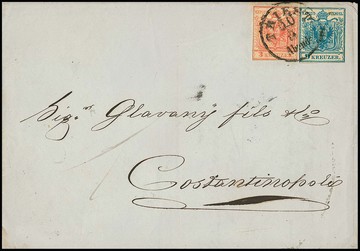 TRIEST
9 KREUZER
Sig.ri Glavany fils & Co
Costantinopoli